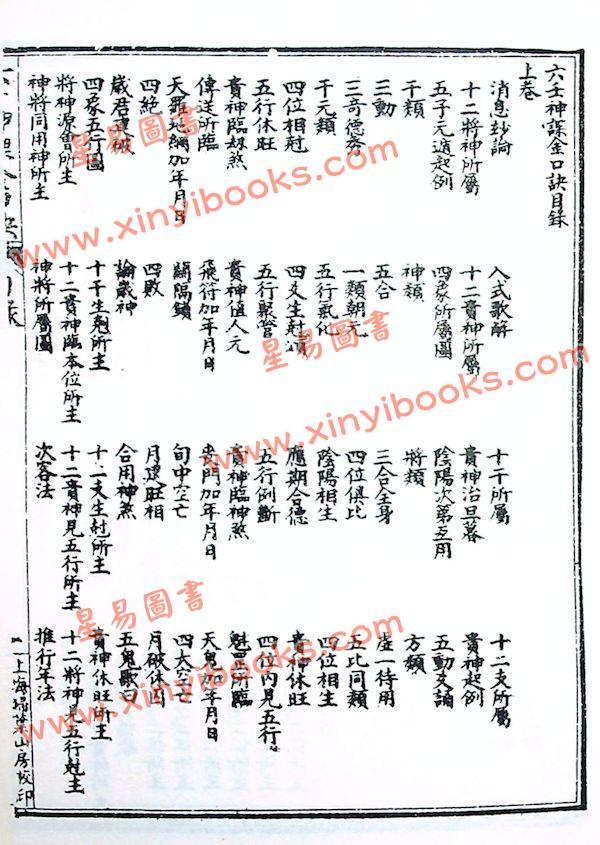 六壬神課金口訣目錄
上卷
消息妙論 入式歌解 十干所屬 十二支所屬
十二將神所屬 十二貴神所屬 貴神治旦暮 貴神起例
五子元遁起例 四象所屬圖 陰陽次第互用 五動爻論
干類 神類 將類 方類
三動 五合 三合全身 虛一待用
三奇德秀 一類朝元 四位俱比 五比同類
干元類 五行氣化 陰陽相生 四位相生
四位相尅 四爻生尅頌 應期合德 貴神休旺
五行休旺 五行聚管 五行例斷 四位內見五行
貴神臨劫煞 貴神值人元 貴神臨神煞 魁罡所臨
傳送所臨 飛符加年月日 喪門加年月日 天鬼加年月日
天羅地網加年月日 關隔鎖 旬中空亡 四大空亡
四絕 四敗 月建旺相 月破休囚
歲君 論歲神 合用神煞 五鬼歌曰
四象五行圖 十干生尅所主 十二支生尅所主 貴神休旺所主
將神源會所主 十二貴神臨本位所主 十二貴神見五行所主 十二將神見五行尅主
神將同用神所主 神將所屬圖 次客法 推行年法
上海埽葉山房校印
www.xinyibooks.com
星易圖書
www.xinyibooks.com
星易圖書
www.xinyibooks.com
星易圖書
www.xinyibooks.com